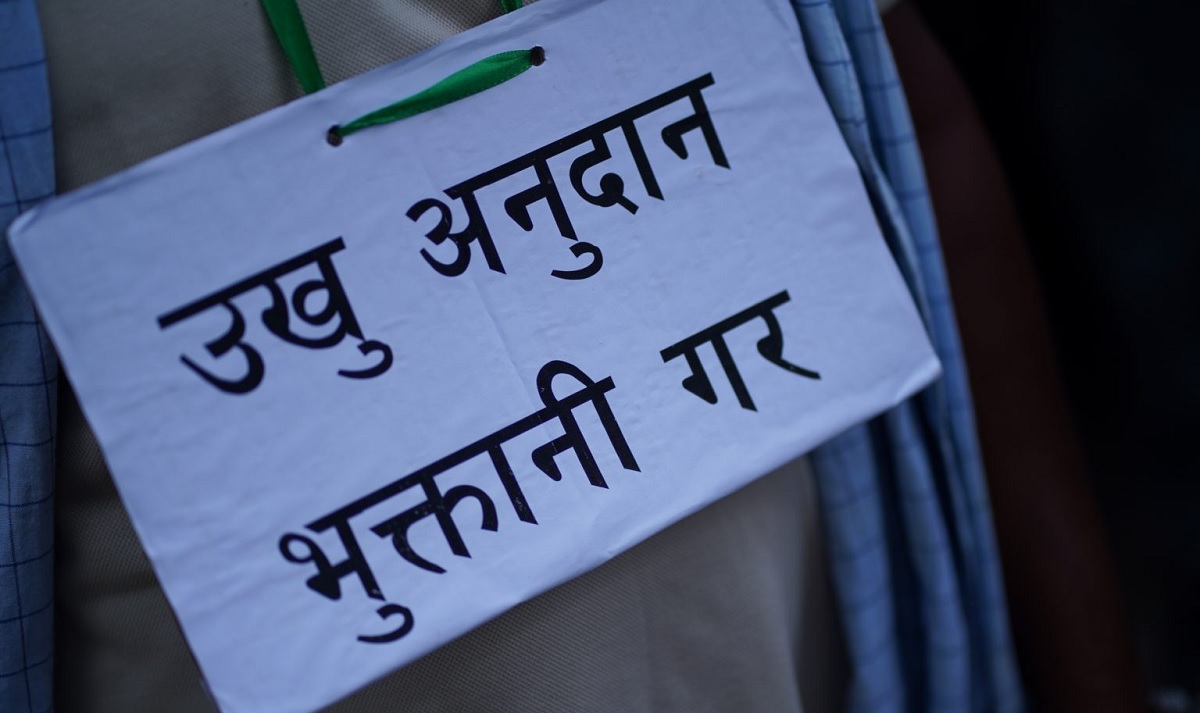 उखु अनुदान
भुक्तानी गर